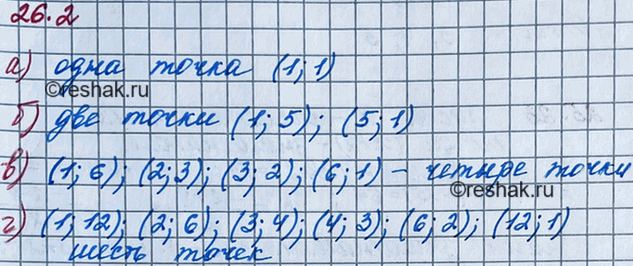 26.2
а) одна точка (1; 1)
©reshak.ru
б) две точки (1; 5); (5; 1)
в) (1; 6); (2; 3); (3; 2); (6; 1) - четыре точки
©reshak.ru
г) (1; 12); (2; 6); (3; 4); (4; 3); (6; 2); (12; 1)
шесть точек